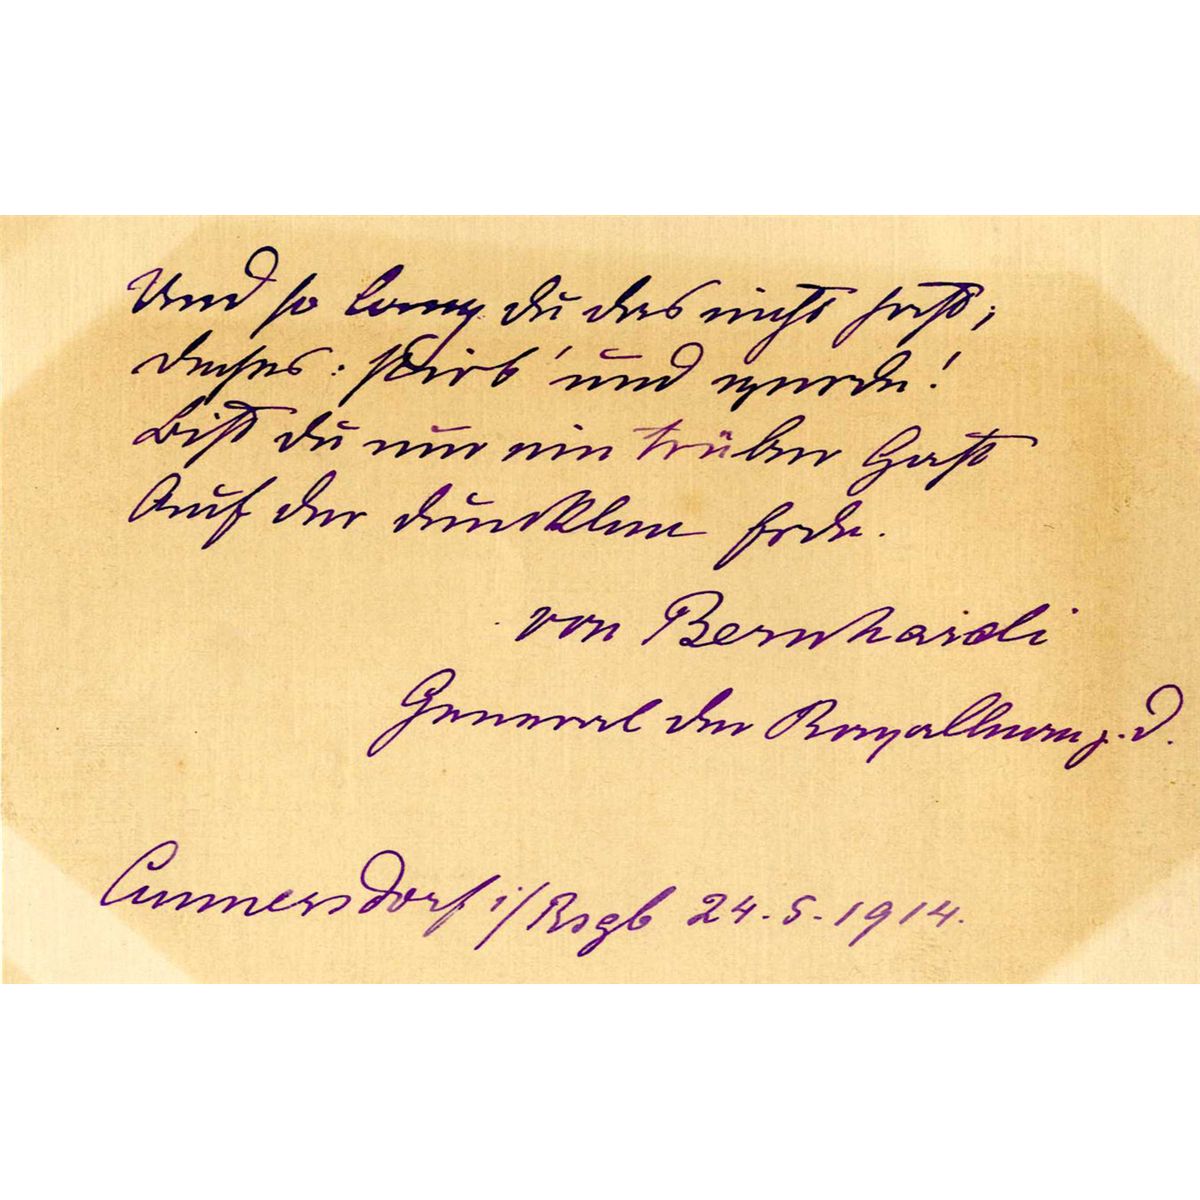 Und so lang du das nicht hast,
dieses: stirb' und werde!
Bist du nur ein trüber Gast
Auf der dunklen Erde.
von Bernhardi
General der Kavallerie z. D.
Cunnersdorf i/Rsgb 24.5.1914.